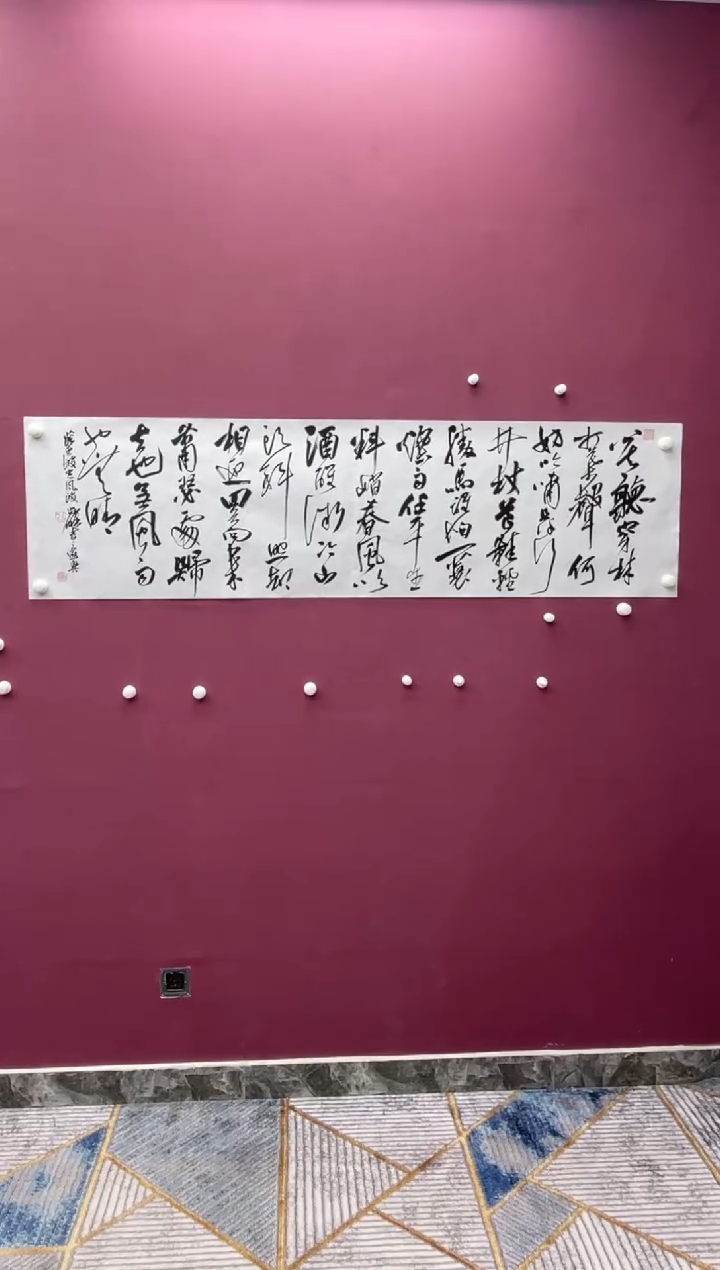 莫聽穿林
打葉聲何
妨吟嘯且徐行
竹杖芒鞋輕
勝馬誰怕一蓑
煙雨任平生
料峭春風吹
酒醒微冷山
頭斜照卻
相迎回首向來
蕭瑟處歸
去也無風雨
也無晴
蘇東坡定風波